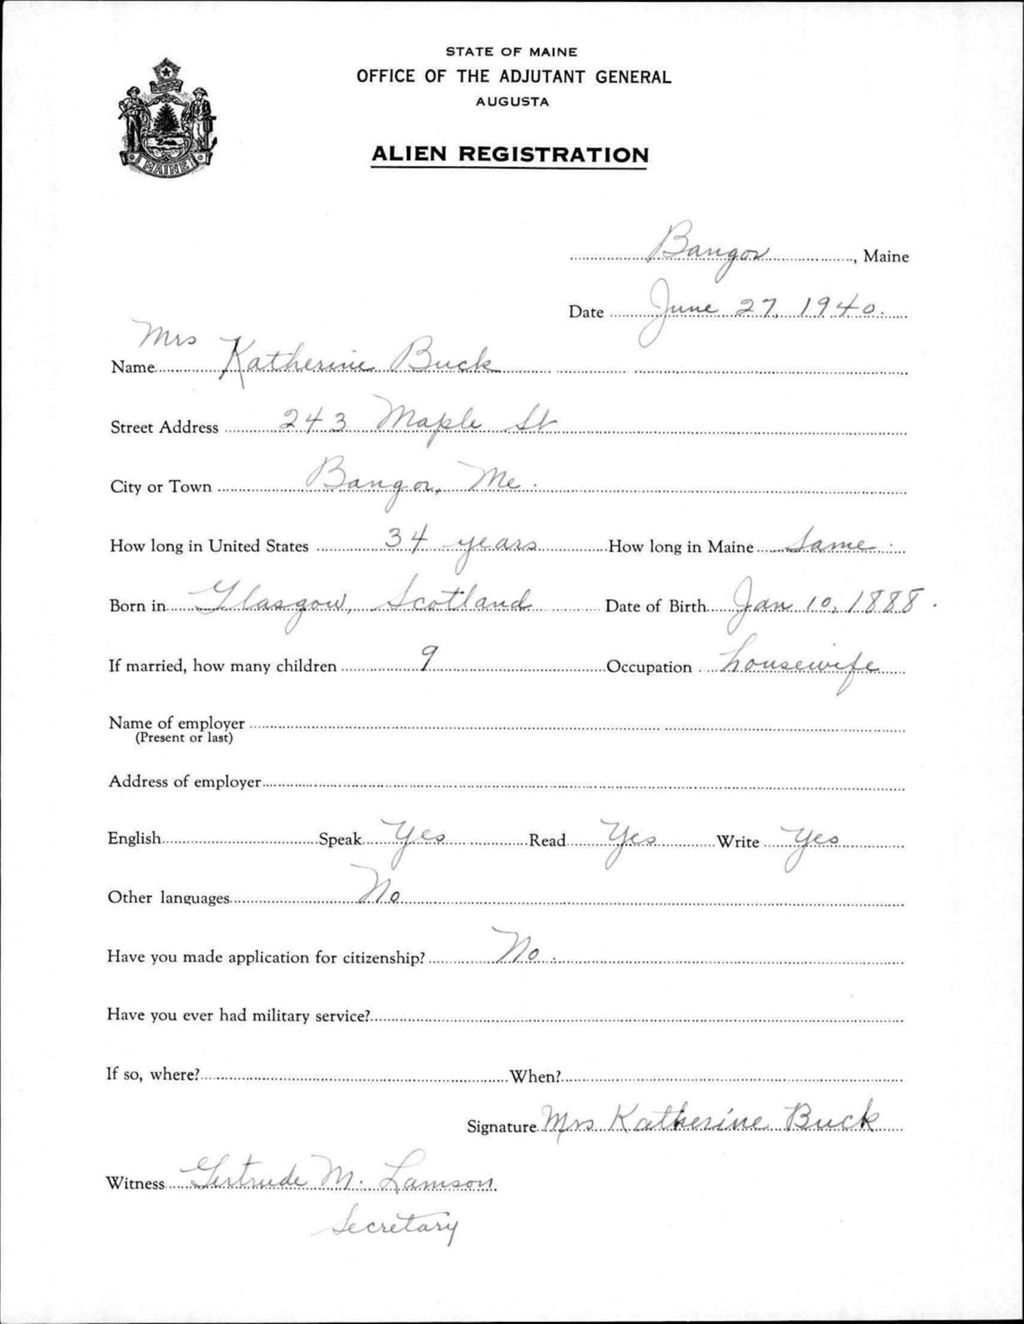 STATE OF MAINE
OFFICE OF THE ADJUTANT GENERAL
AUGUSTA
ALIEN REGISTRATION
MAINE
Bangor, Maine
Date June 27, 1940.
Name Mrs Katherine Buck
Street Address 243 Maple St
City or Town Bangor, Me.
How long in United States 34 years How long in Maine Same.
Born in Glasgow, Scotland Date of Birth Jan 10, 1888.
If married, how many children 9 Occupation housewife
Name of employer
(Present or last)
Address of employer
English Speak Yes Read Yes Write Yes
Other languages No
Have you made application for citizenship? No.
Have you ever had military service?
If so, where? When?
Signature Mrs Katherine Buck
Witness Gertrude M. Lamson
Secretary